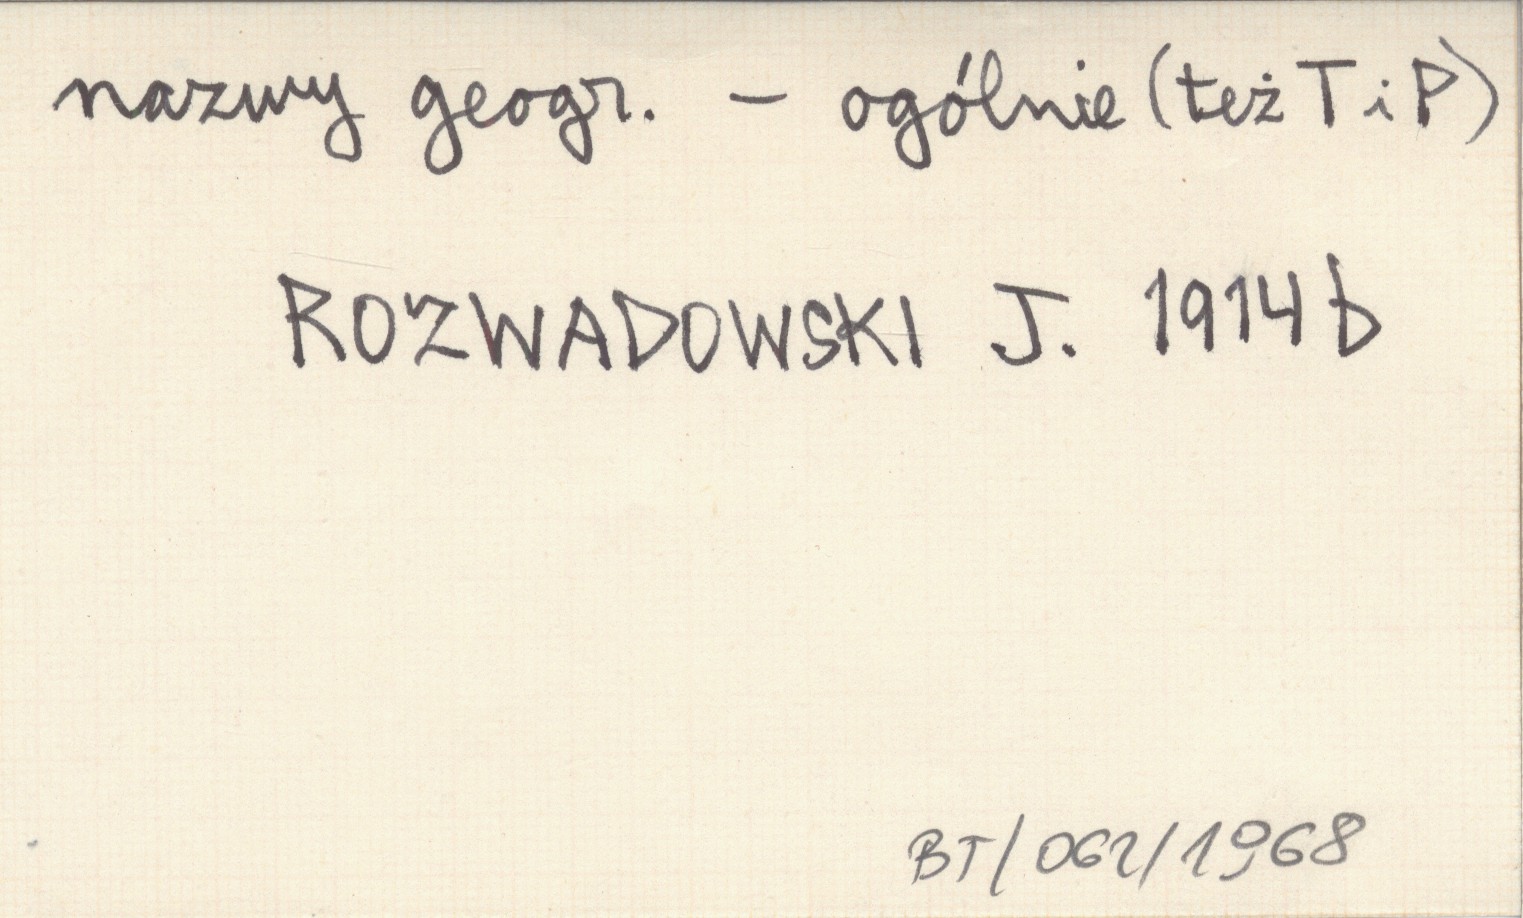 nazwy geogr. – ogólnie (też T i P)
ROZWADOWSKI J. 1914 b
BT/062/1968